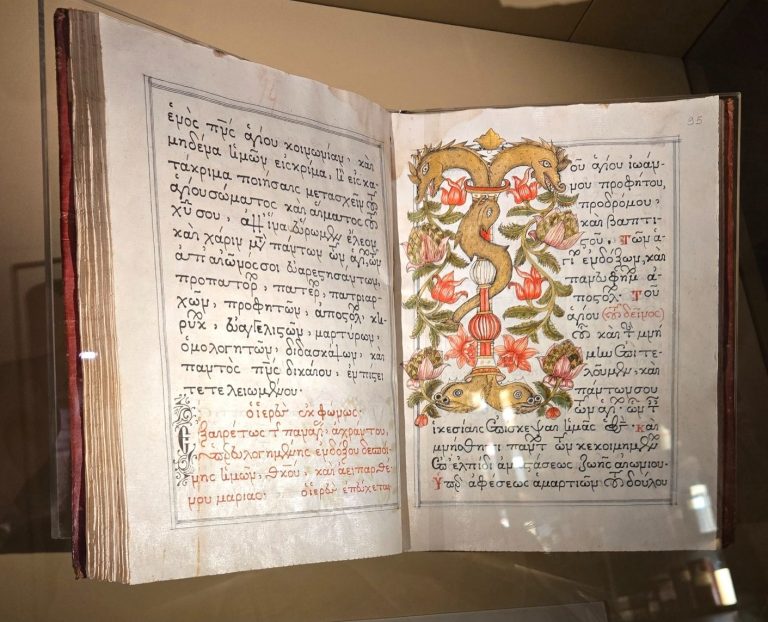 ἑνὸς πν̅ς ἁγίου κοινωνίαν, καὶ
μηδένα ἡμῶν εἰς κρίμα, ἢ εἰς κα
τάκριμα ποιήσαις μετασχεῖν τοῦ
ἁγίου σώματος καὶ αἵματος τοῦ
χυ̅ σου, ἀλλ' ἵνα εὕρωμεν ἔλεον
καὶ χάριν μετ πάντων τῶν ἁγίων
ἀπ' αἰῶνός σοι εὐαρεστησάντων,
προπατόρ, πατέρ, πατριαρ
χῶν, προφητῶν, ἀποστόλ, κη
ρύκ, εὐαγγελιστῶν, μαρτύρων,
ὁμολογητῶν, διδασκάλων, καὶ
παντὸς πν̅ς δικαίου, ἐν πίστει
τετελειωμένου.
ὁ ἱερεὺς ἐκφώνως·
Ἐξαιρέτως τ παναγ, ἀχράντου,
ὑπερευλογημένης ἐνδόξου δεσποί
νης ἡμῶν, θκου, καὶ ἀειπαρθέ
νου μαρίας· ὁ ἱερεὺς ἐπεύχεται
95
οῦ ἁγίου ἰωάν
νου προφήτου,
προδρόμου,
καὶ βαπτι
στοῦ, τῶν ἁ
γί ἐνδόξων, καὶ
πανευφήμ ἀ
ποστόλ. τοῦ
ἁγίου (τοῦ δεῖνος)
οὗ καὶ τ μνή
μην ἐπιτε
λοῦμεν, καὶ
πάντων σου
τῶν ἁγ. ὧν τ
ἱκεσίαις ἐπίσκεψαι ἡμᾶς καὶ
μνήσθητι πάντ τῶν κεκοιμημέν
ἐπ' ἐλπίδι ἀναστάσεως ζωῆς αἰωνίου.
Ὑπὲρ ἀφέσεως ἁμαρτιῶν τοῦ δούλου